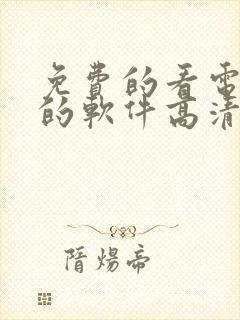 免費的看電
的軟件高清
隋煬帝